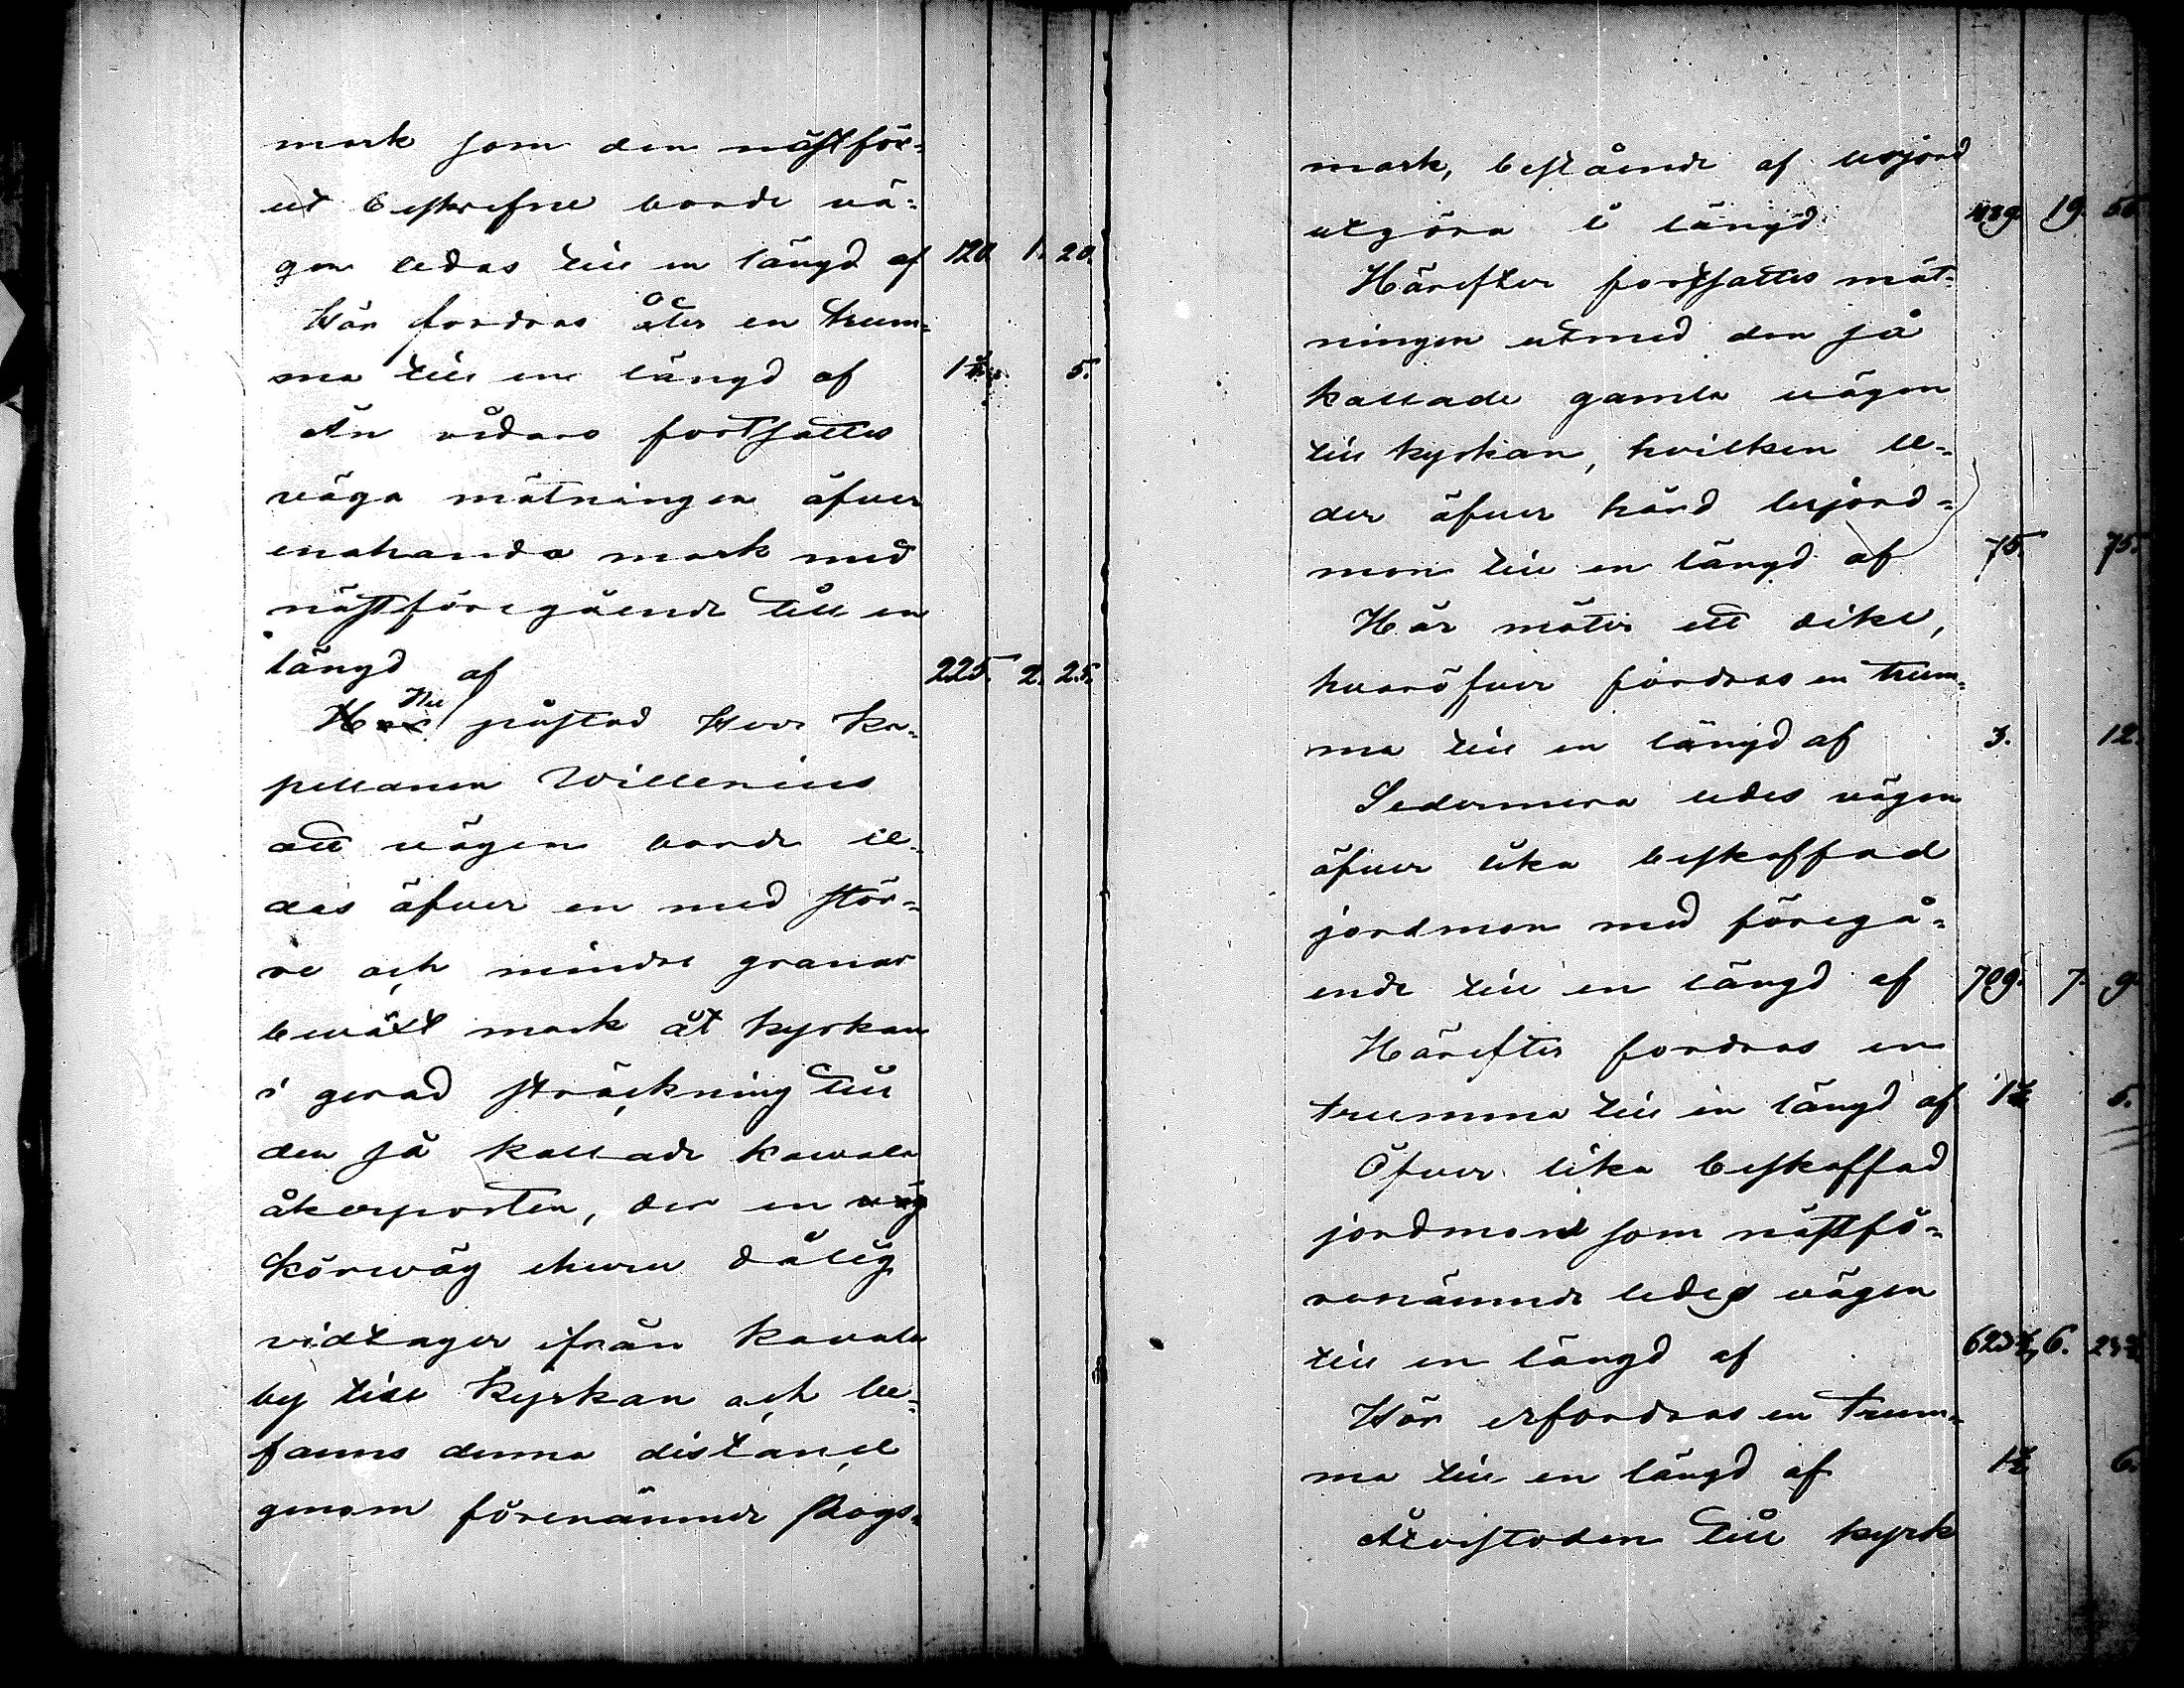 mark som den nästför-
ut beskrefne borde vä-
gen ledas till en längd af 120. 1. 20.
Här fordras åter en trum-
ma till en längd af 1½ 5.
Än vidare fortsattes
väga mätningen öfver
enahanda mark med
nästföregående till en
längd af 225. 2. 25.
Nu påstod Herr Ka-
pellanen Willenius
att vägen borde le-
das öfver en med stör-
re och mindre granar
bevuxt mark åt kyrkan
i gerad sträckning till
den så kallade Kavala
åkerporten, der en väg
körwäg ehuru dålig
vidtager ifrån Kavala
by till Kyrkan och be-
fanns denna distance
genom förenämnde skogs-
mark, bestående af lerjord
utgöra i längd 19. 50
Härefter fortsattes mät-
ningen utmed den så
kallade gamla vägen
till kyrkan, hvilken le-
der öfver hård lerjord-
mon till en längd af 75. 75.
Här möter ett dike,
hvaröfver fordras en trum-
ma till en längd af 3. 12.
Sedermera ledes vägen
öfver lika beskaffad
jordmon med föregå-
ende till en längd af 709. 7. 9.
Härefter fordras en
trumma till en längd af 1½ 5.
Öfver lika beskaffad
jordmon som nästfö-
renämnde ledes vägen
till en längd af 623½ 6. 23½
Här erfordras en trum-
ma till en längd af 1½ 6.
Återstoden till kyrk